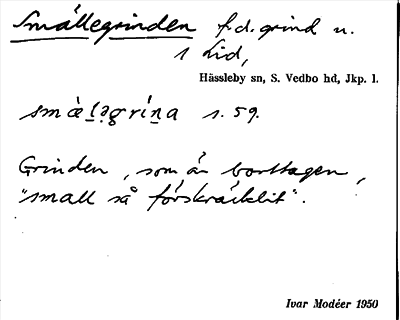 Smällegrinden f.d. grind n.
s Lid,
Hässleby sn, S. Vedbo hd, Jkp. l.
smæ̀ḻəgríṉa s. 59.
Grinden, som är borttagen,
"small så förskräcklit".
Ivar Modéer 1950